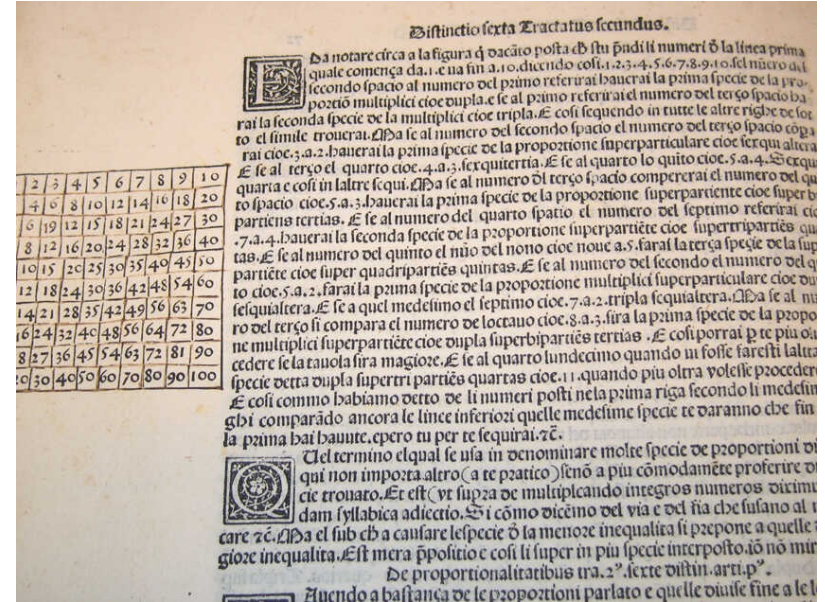 Distinctio sexta Tractatus secundus.
Da notare circa a la figura q̇ dacāto posta ch̄ stu p̄ndi li numeri ō la linea prima
quale comença da.1.e va fin a.10.dicendo cosi.1.2.3.4.5.6.7.8.9.10.sel nūero del
secondo spacio al numero del primo referirai hauerai la prima specie de la pro-
portiō multiplici cioe dupla.e se al primo referirai el numero del terço spacio ha
rai la seconda specie de la multiplici cioe tripla.E cosi sequendo in tutte le altre righe de sot
to el simile trouerai.Ma se al numero del secondo spacio el numero del terço spacio cōpa
rai cioe.3.a.2.hauerai la prima specie de la proportione superparticulare cioe sexqui altera
E se al terço el quarto cioe.4.a.3.sexquitertia.E se al quarto lo quito cioe.5.a.4.Sexqui
quarta e cosi in laltre sequi.Ma se al numero ōl terço spacio compererai el numero del qu
to spacio cioe.5.a.3.hauerai la prima specie de la proportione superpartiente cioe super bi
partiens tertias.E se al numero del quarto spatio el numero del septimo referirai cio
.7.a.4.hauerai la seconda specie de la proportione superpartiēte cioe supertripartiēs qu
tas.E se al numero del quinto el nūo del nono cioe noue a.5.farai la terça specie de la sup
partiēte cioe super quadripartiēs quintas.E se al numero del secondo el numero del qu
to cioe.5.a.2.farai la prima specie de la proportione multiplici superparticulare cioe du
sesquialtera.E se a quel medesimo el septimo cioe.7.a.2.tripla sequialtera.Ma se al nu
ro del terço si compara el numero de loctauo cioe.8.a.3.sira la prima specie de la propo
ne multiplici superpartiēte cioe dupla superbipartiēs tertias.E cosi porrai p te piu olt
cedere se la tauola sira magiore.E se al quarto lundecimo quando ui fosse faresti laltra
specie detta dupla supertri partiēs quartas cioe.11.quando piu oltra volesse procedere
E cosi commo habiamo detto de li numeri posti nela prima riga secondo li medesim
ghi comparādo ancora le linee inferiori quelle medesime specie te daranno che fin
la prima hai hauute.epero tu per te sequirai.⁊c̄.
Uel termino elqual se usa in denominare molte specie de proportioni di
qui non importa.altro(a te pratico)senō a piu cōmodamēte proferire
cie trouato.Et est(vt supra de multiplicando integros numeros diximu
dam syllabica adiectio.Si cōmo dicēmo del via e del fia che susano al
care ⁊c̄.Ma el sub ch̄ a causare lespecie ō la menore inequalita si prepone a quelle
giore inequalita.Est mera p̄positio e cosi li super in piu specie interposto.iō nō mir
De proportionalitatibus tra.2ꝰ.sexte distin.arti.pꝰ.
Auendo a bastança de le proportioni parlato e quelle diuise fine a le
2 3 4 5 6 7 8 9 10
4 6 8 10 12 14 16 18 20
6 19 12 15 18 21 24 27 30
8 12 16 20 24 28 32 36 40
10 15 20 25 30 35 40 45 50
12 18 24 30 36 42 48 54 60
14 21 28 35 42 49 56 63 70
16 24 32 40 48 56 64 72 80
8 27 36 45 54 63 72 81 90
20 30 40 50 60 70 80 90 100